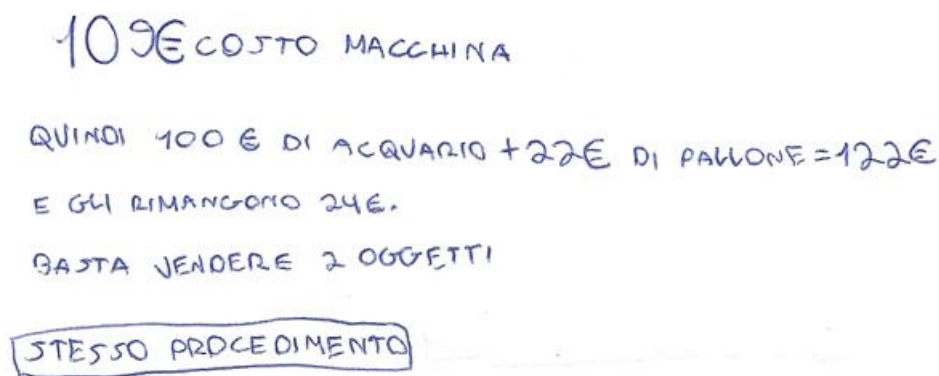 109€ COSTO MACCHINA
QUINDI 100 € DI ACQUARIO + 22€ DI PALLONE = 122€
E GLI RIMANGONO 24€.
BASTA VENDERE 2 OGGETTI
STESSO PROCEDIMENTO